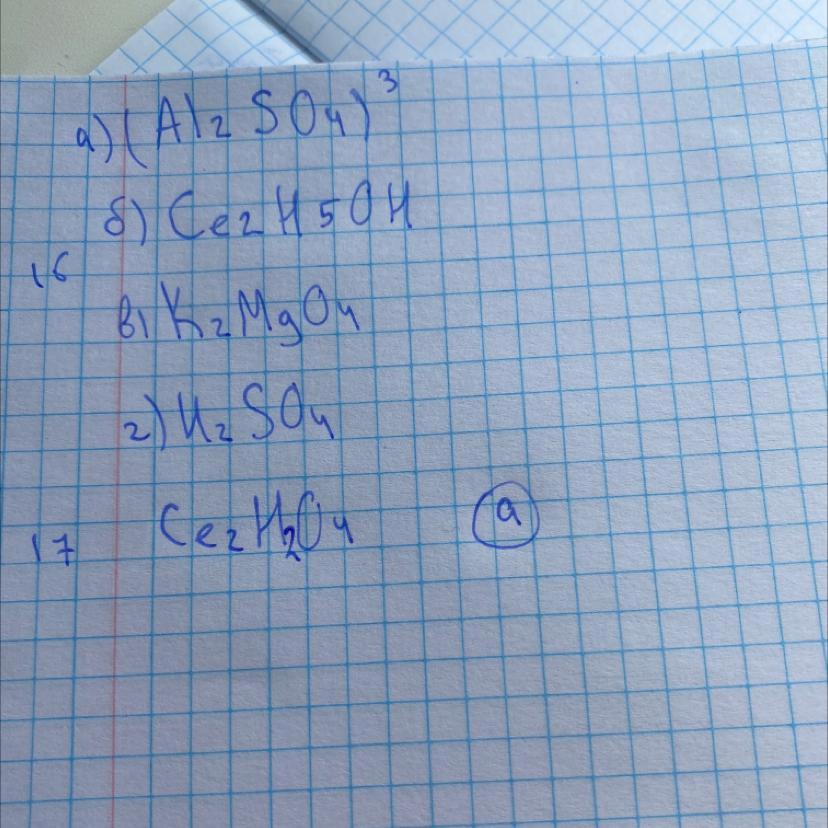 а) (Al2SO4)³
б) Ce2H5OH
16
в) K2MgO4
г) H2SO4
17 Ce2H2O4 а